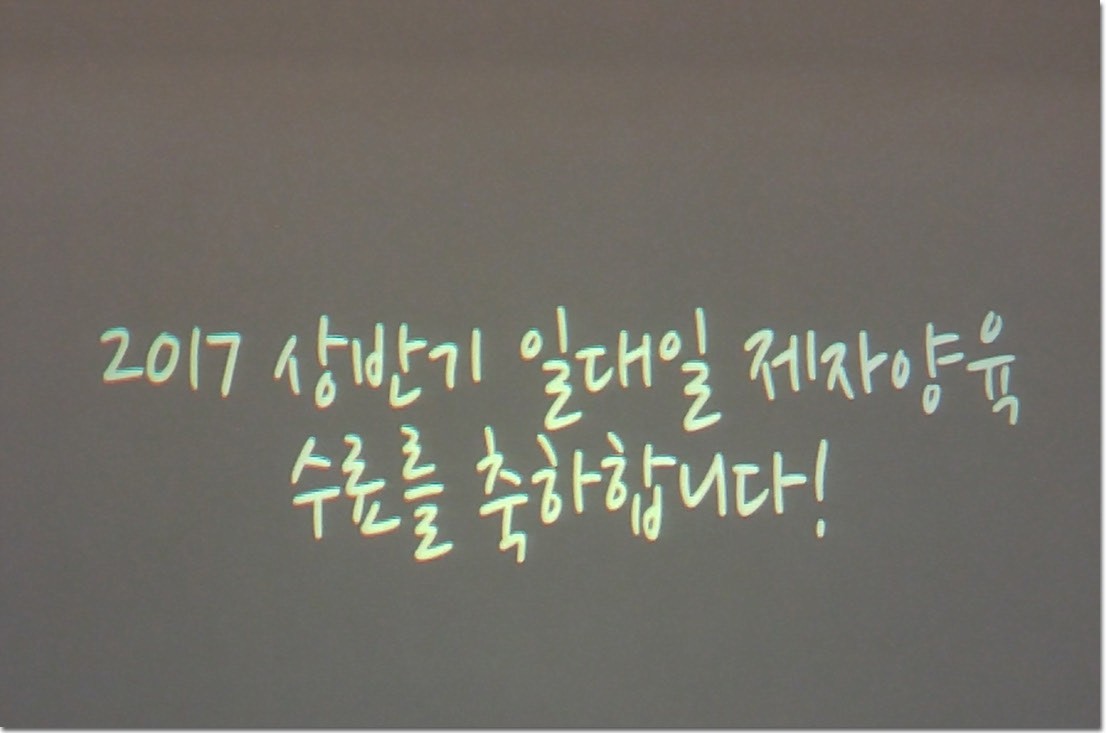 2017 상반기 일대일 제자양육
수료를 축하합니다!